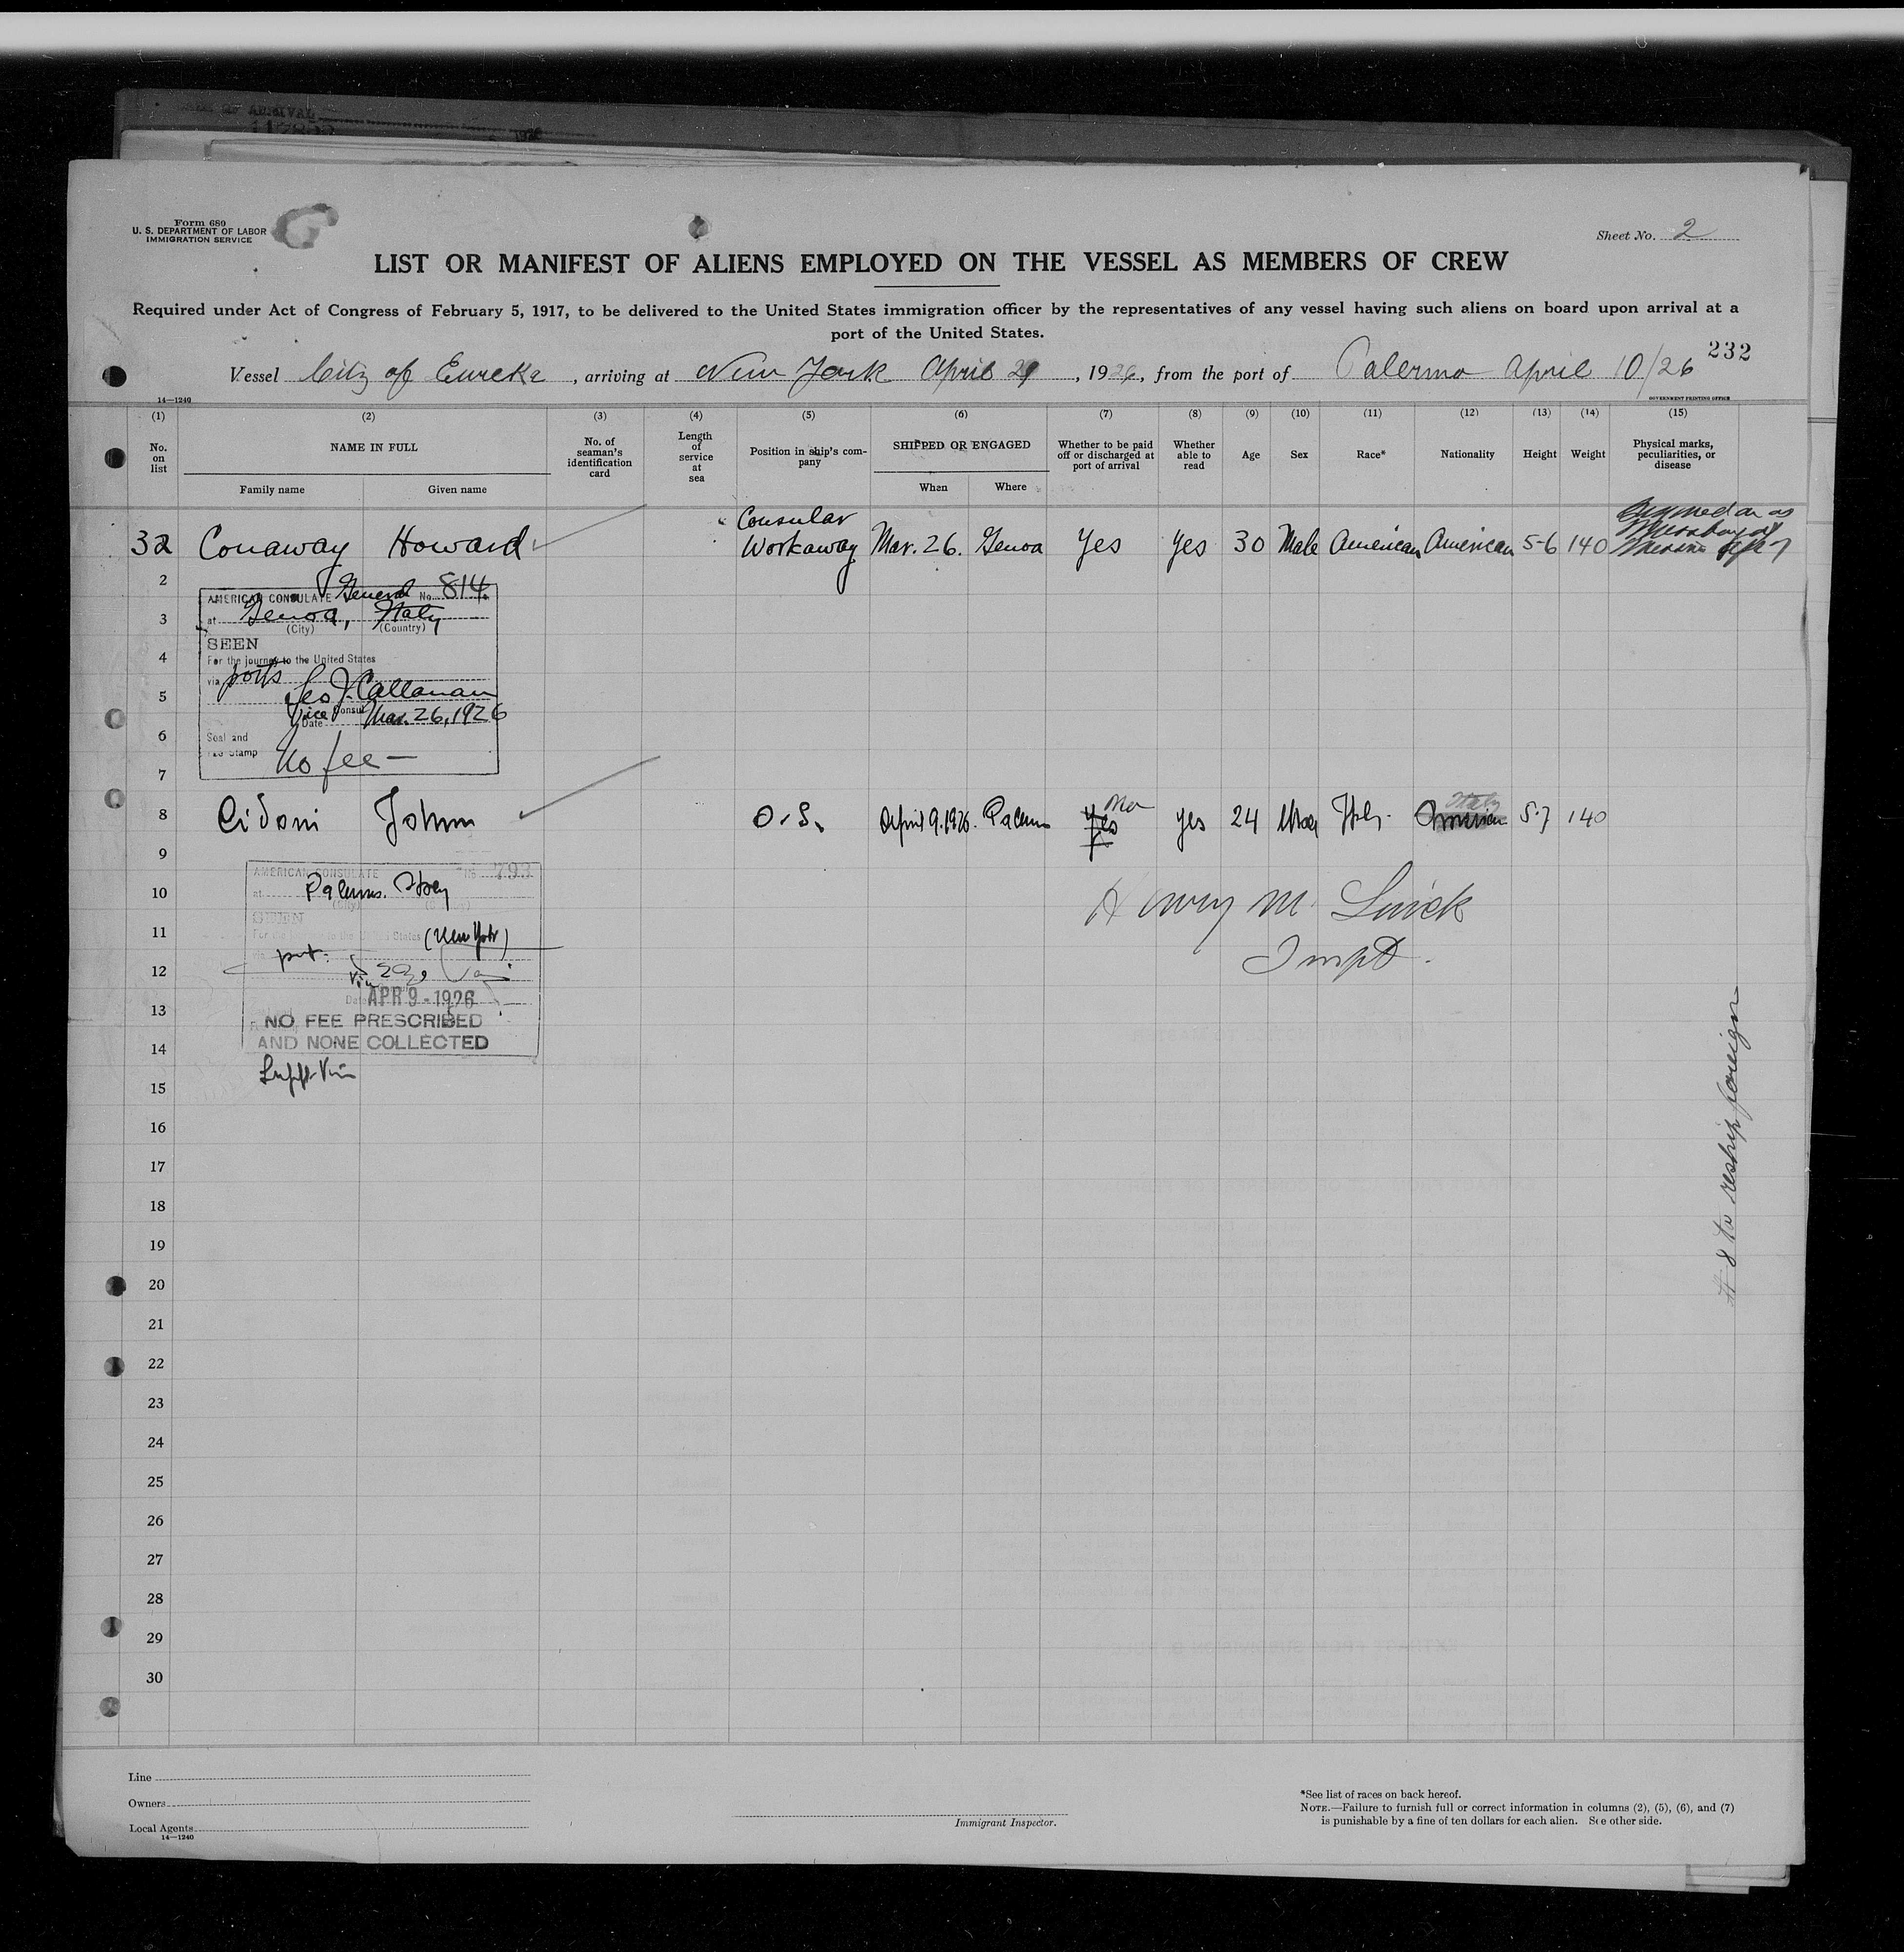 Form 689
U. S. DEPARTMENT OF LABOR
IMMIGRATION SERVICE
G
Sheet No. 2
LIST OR MANIFEST OF ALIENS EMPLOYED ON THE VESSEL AS MEMBERS OF CREW
Required under Act of Congress of February 5, 1917, to be delivered to the United States immigration officer by the representatives of any vessel having such aliens on board upon arrival at a
port of the United States.
232
Vessel City of Eureka, arriving at New York April, 1926, from the port of Palermo April 10/26
14—1240
GOVERNMENT PRINTING OFFICE
(1) (2) (3) (4) (5) (6) (7) (8) (9) (10) (11) (12) (13) (14) (15)
No. on list
NAME IN FULL
Family name
Given name
No. of seaman's identification card
Length of service at sea
Position in ship's company
SHIPPED OR ENGAGED
When
Where
Whether to be paid off or discharged at port of arrival
Whether able to read
Age
Sex
Race*
Nationality
Height
Weight
Physical marks, peculiarities, or disease
32 Conaway Howard Consular Workaway Mar. 26. Genoa Yes Yes 30 Male American American 5-6 140
2
AMERICAN CONSULATE General No. 814
3
at Genoa, Italy
(City) (Country)
SEEN
4
For the journey to the United States
via ports
5
Geo J. Callanan
Vice Consul
Date Mar. 26, 1926
6
Seal and
Fee Stamp
No fee —
7
8 Cidoni John O.S. April 9.1926. Palermo Yes yes 24 Italy American 5.7 140
9
AMERICAN CONSULATE No 793
10
at Palermo. Italy
SEEN
11
For the journey to the United States (New York)
12
13
Date APR 9 - 1926
NO FEE PRESCRIBED
14
AND NONE COLLECTED
15
Henry M.
Inspt.
16
17
18
19
20
21
22
23
24
25
26
27
28
29
30
# 8 to reship foreign
Line
Owners
Local Agents
14—1240
Immigrant Inspector.
*See list of races on back hereof.
NOTE.—Failure to furnish full or correct information in columns (2), (5), (6), and (7)
is punishable by a fine of ten dollars for each alien. See other side.